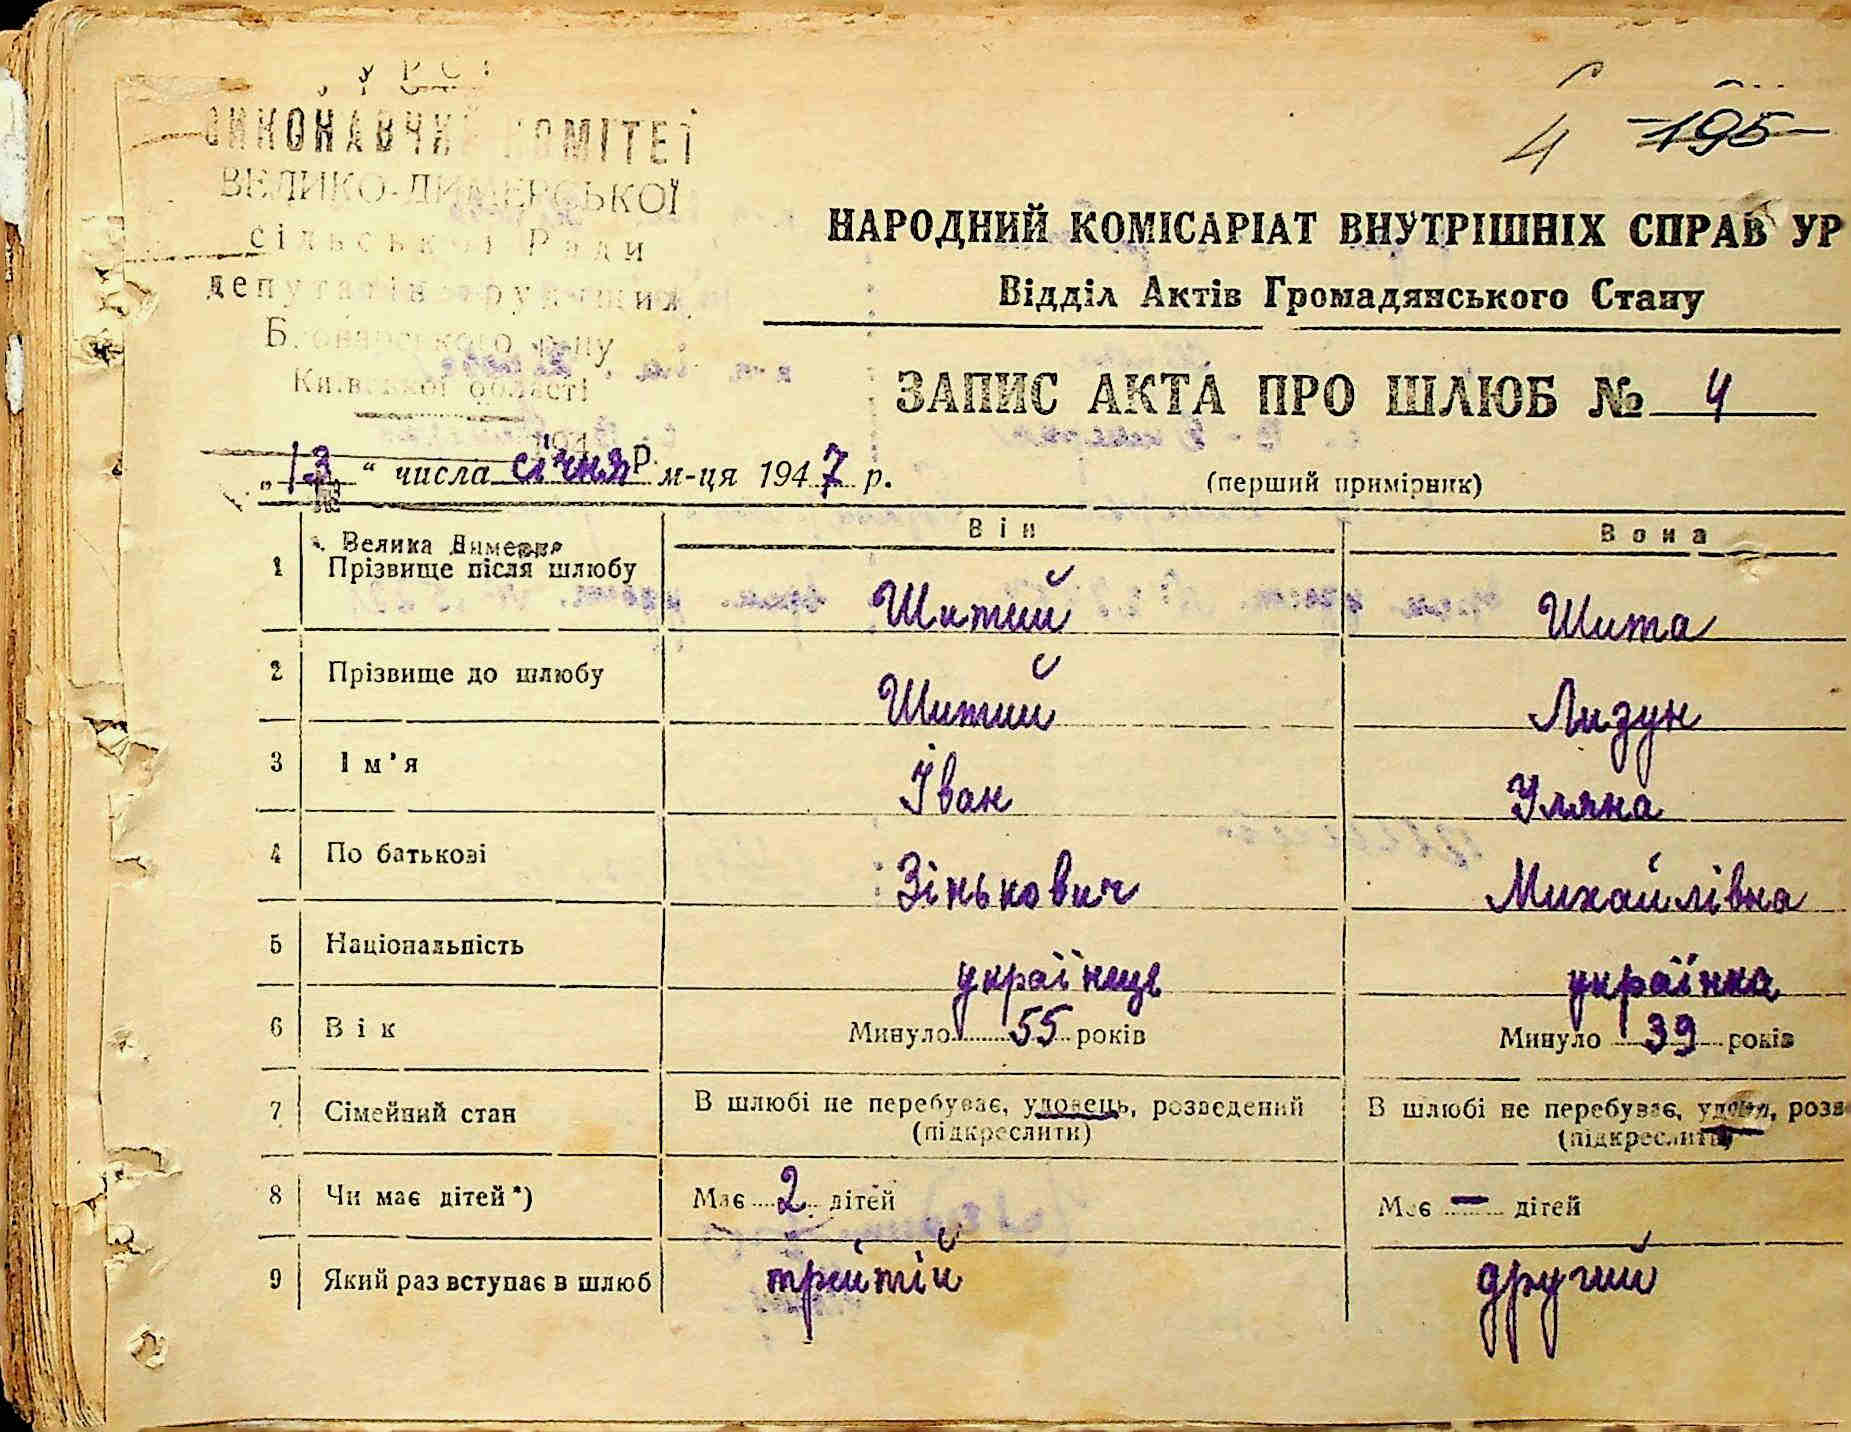 УРСР
ВИКОНАВЧИЙ КОМІТЕТ
ВЕЛИКО-ДИМЕРСЬКОЇ
сільської Ради
депутатів трудящих
Броварського р-ну
Київської області
4 195
НАРОДНИЙ КОМІСАРІАТ ВНУТРІШНІХ СПРАВ УР
Відділ Актів Громадянського Стану
ЗАПИС АКТА ПРО ШЛЮБ № 4
„13“ числа січня м-ця 1947 р.
(перший примірник)
Він Вона
Велика Димерка
1 Прізвище після шлюбу Шитий Шита
2 Прізвище до шлюбу Шитий Лизун
3 Ім'я Іван Уляна
4 По батькові Зінькович Михайлівна
5 Національність українець українка
6 Вік Минуло 55 років Минуло 39 років
7 Сімейний стан В шлюбі не перебуває, удовець, розведений В шлюбі не перебуває, удова, розв
(підкреслити) (підкреслити)
8 Чи має дітей*) Має 2 дітей Має — дітей
9 Який раз вступає в шлюб третій другий